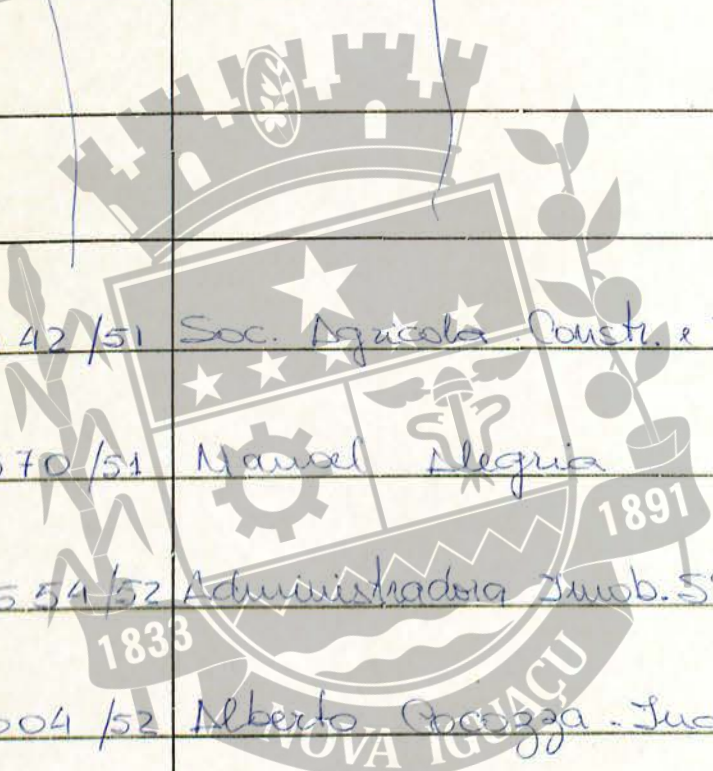 42/51 Soc. Agricola Constr. e
570/51 Manoel Alegria
554/52 Administradora Imob. S
004/52 Alberto Cocozza - Ind
1891
1833
NOVA IGUAÇU